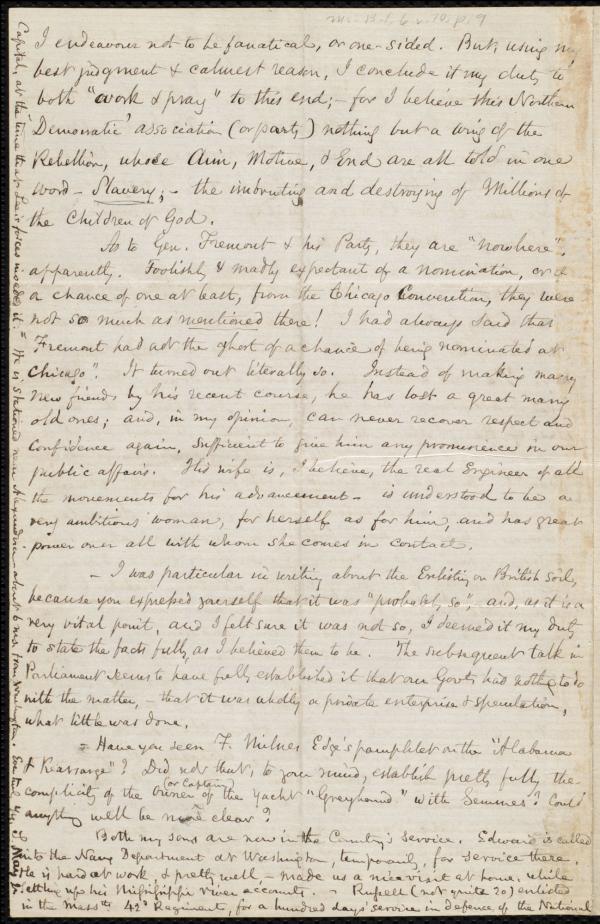 Ms. B.1.6 v.10, p. 9
I endeavour not to be fanatical, or one-sided. But, using my
best judgment & calmest reason, I conclude it my duty to
both "work & pray" to this end; - for I believe this Northern
'Democratic' association (or party) nothing but a wing of the
Rebellion, whose Aim, Motive, & End are all told in one
word - Slavery; - the imbruting and destroying of Millions of
the Children of God.
As to Gen. Fremont & his Party, they are "nowhere",
apparently. Foolishly & madly expectant of a nomination, or of
a chance of one at least, from the Chicago Convention, they were
not so much as mentioned there! I had always said that
"Fremont had not the ghost of a chance of being nominated at
Chicago". It turned out literally so. Instead of making many
new friends by his recent course, he has lost a great many
old ones; and, in my opinion, can never recover respect and
confidence again, sufficient to give him any prominence in our
public affairs. His wife is, I believe, the real Engineer of all
the movements for his advancement - is understood to be a
very ambitious woman, for herself as for him, and has great
power over all with whom she comes in contact.
- I was particular in writing about the Enlisting on British soil,
because you expressed yourself that it was "probably so", and, as it is a
very vital point, and I felt sure it was not so, I deemed it my duty
to state the facts fully, as I believed them to be. The subsequent talk in
Parliament seems to have fully established it that our Govt. had nothg to do
with the matter, - that it was wholly a private enterprise & speculation,
what little was done.
= Have you seen F. Milnes Edge's pamphlet on the "Alabama
& Kearsarge"? Did not that, to your mind, establish pretty fully the
complicity of the owner (or Captain) of the yacht "Greyhound" with Semmes? Could
anything well be more clear?
Both my sons are now in the Country's service. Edward is called
into the Navy Department at Washington, temporarily, for service there.
He is hard at work, & pretty well, - made us a nice visit at home, while
settling up his Mississippi river accounts. - Russell (not quite 20) enlisted
in the Massts. 42d Regiment, for a hundred days' service in defence of the National
Capital, at the time that Lee's forces invaded it. = He is stationed near Alexandria - about 6 ms. from Washington.